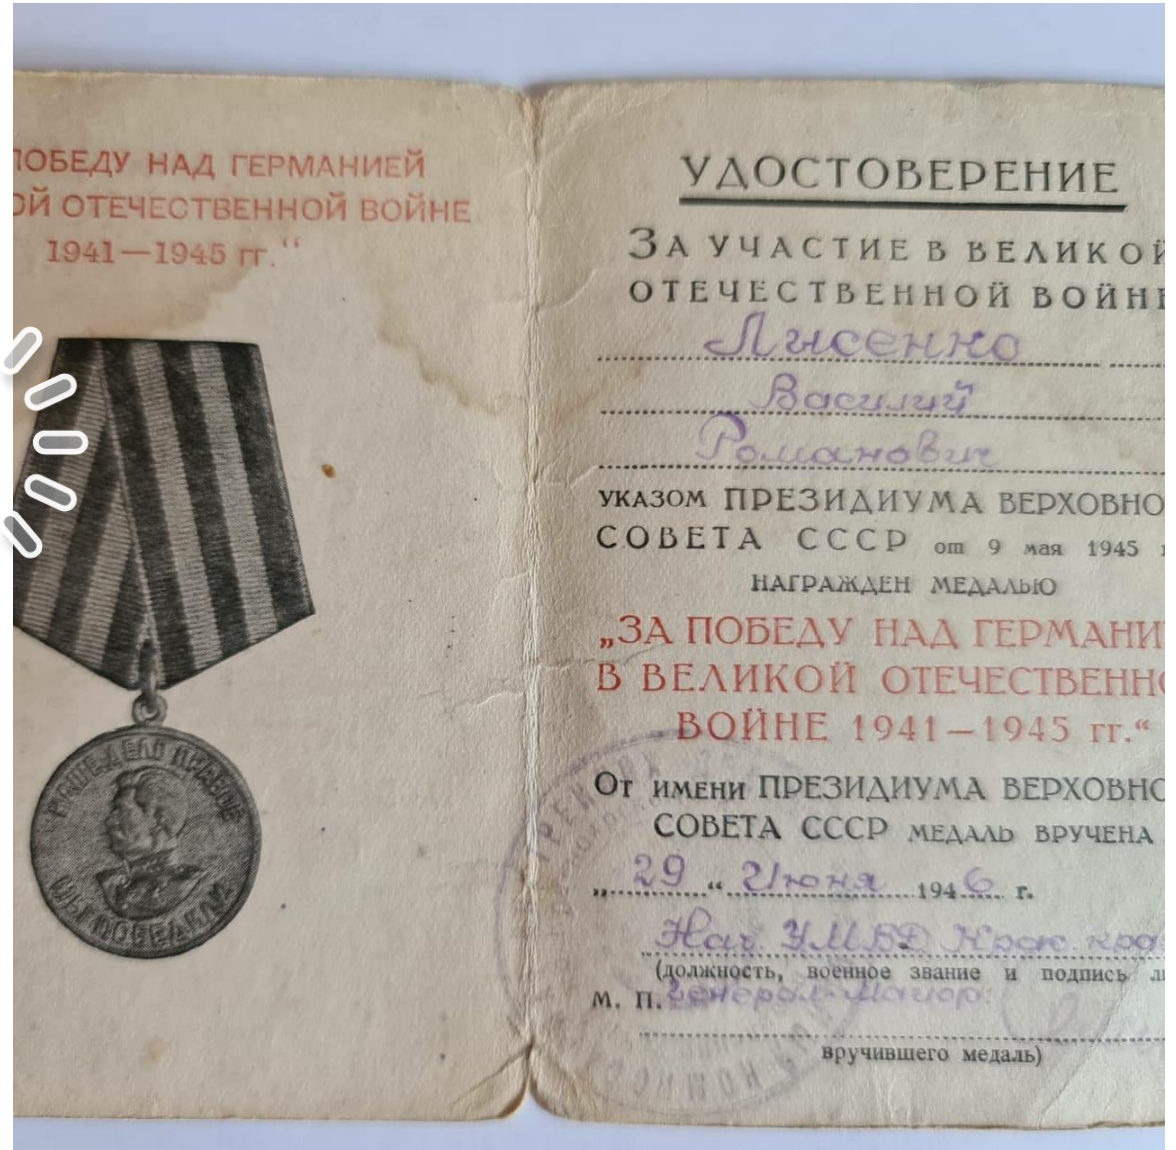 ПОБЕДУ НАД ГЕРМАНИЕЙ
ОЙ ОТЕЧЕСТВЕННОЙ ВОЙНЕ
1941—1945 гг."
НАШЕ ДЕЛО ПРАВОЕ
МЫ ПОБЕДИЛИ
УДОСТОВЕРЕНИЕ
ЗА УЧАСТИЕ В ВЕЛИКОЙ
ОТЕЧЕСТВЕННОЙ ВОЙНЕ
Лысенко
Василий
Романович
УКАЗОМ ПРЕЗИДИУМА ВЕРХОВНО
СОВЕТА СССР от 9 мая 1945 г
НАГРАЖДЕН МЕДАЛЬЮ
„ЗА ПОБЕДУ НАД ГЕРМАНИ
В ВЕЛИКОЙ ОТЕЧЕСТВЕННО
ВОЙНЕ 1941—1945 гг.“
От имени ПРЕЗИДИУМА ВЕРХОВНО
СОВЕТА СССР МЕДАЛЬ ВРУЧЕНА
„29“ Июня 1946 г.
Нач. УМВД Крас. кра
(должность, военное звание и подпись ли
М. П. Генерал-Майор:
вручившего медаль)